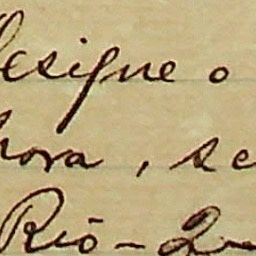 designe o
hora, se
Rio - 2